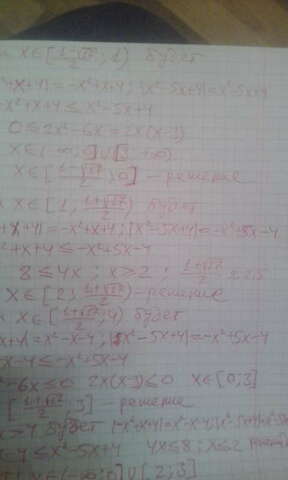 x∈[1-√17/2; 1) будет
²+x+4|=-x²+x+4; |x²-5x+4|=x²-5x+4
-x²+x+4≤x²-5x+4
0≤2x²-6x=2x(x-3)
x∈(-∞;0]∪[3;+∞)
x∈[1-√17/2; 0] - решение
x∈[1; 1+√17/2) будет
+x+4|=-x²+x+4; |x²-5x+4|=-x²+5x-4
²+x+4≤-x²+5x-4
8≤4x; x≥2; 1+√17/2 ≈2,5
x∈[2; 1+√17/2) - решение
x∈[1+√17/2; 4) будет
+x+4|=x²-x-4; |x²-5x+4|=-x²+5x-4
-x-4≤-x²+5x-4
²-6x≤0 2x(x-3)≤0 x∈[0;3]
[1+√17/2; 3] - решение
x>4 будет |-x²+x+4|=x²-x-4; |x²-5x+4|=x²-5x+4
-x-4≤x²-5x+4 4x≤8; x≤2
x∈(-∞;0]∪[2;3]